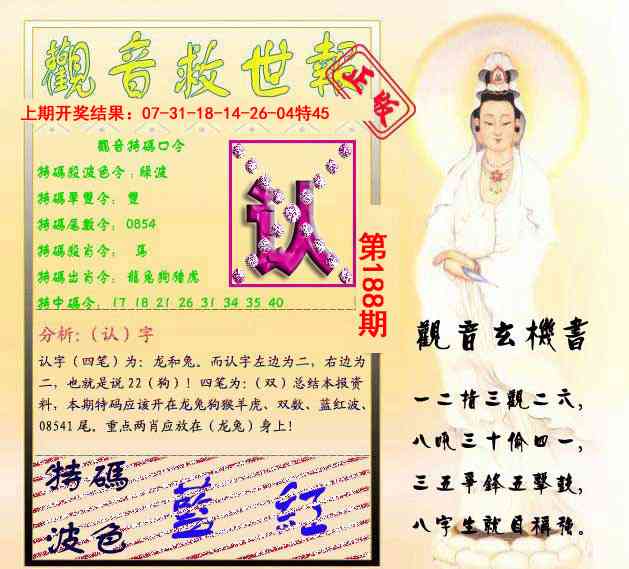 觀音救世報
正版
上期开奖结果：07-31-18-14-26-04特45
觀音特碼口令
特碼殺波色令：綠波
特碼單雙令： 雙
特碼尾數令： 0854
特碼殺肖令： 馬
特碼出肖令： 龍兔狗猪虎
特中碼令： 17 18 21 26 31 34 35 40
认
第188期
分析:（认）字
认字（四笔）为：龙和兔。而认字左边为二，右边为
二，也就是说22（狗）！四笔为：（双）总结本报资
料，本期特码应该开在龙兔狗猴羊虎、双数、蓝红波、
08541尾。重点两肖应放在（龙兔）身上！
特碼
波色
藍 紅
觀音玄機書
一二指三觀二六，
八吼三十偷四一，
三五爭鋒五擊鼓，
八字生就自稱強。